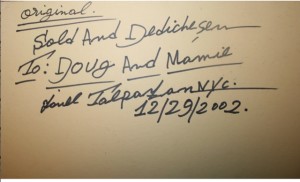 original.
Sold And Dedichesen
To: Doug And Mamie
Ionel Talpazan NYc.
12/29/2002.